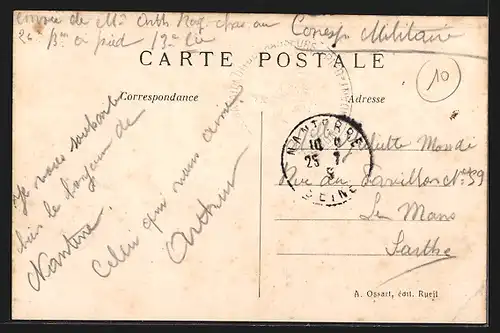 envoie de Mr Arth
2e Bon à pied 13e Cie
Corresp Militaire
CARTE POSTALE
10
Correspondance
Adresse
Je vous souhaite
bien le bonjour de
Nanterre.
Celui qui vous aime
Arthur
NANTERRE
SEINE
Juliette
Rue du Pavillon No 39
Le Mans
Sarthe
A. Ossart, édit. Rueil